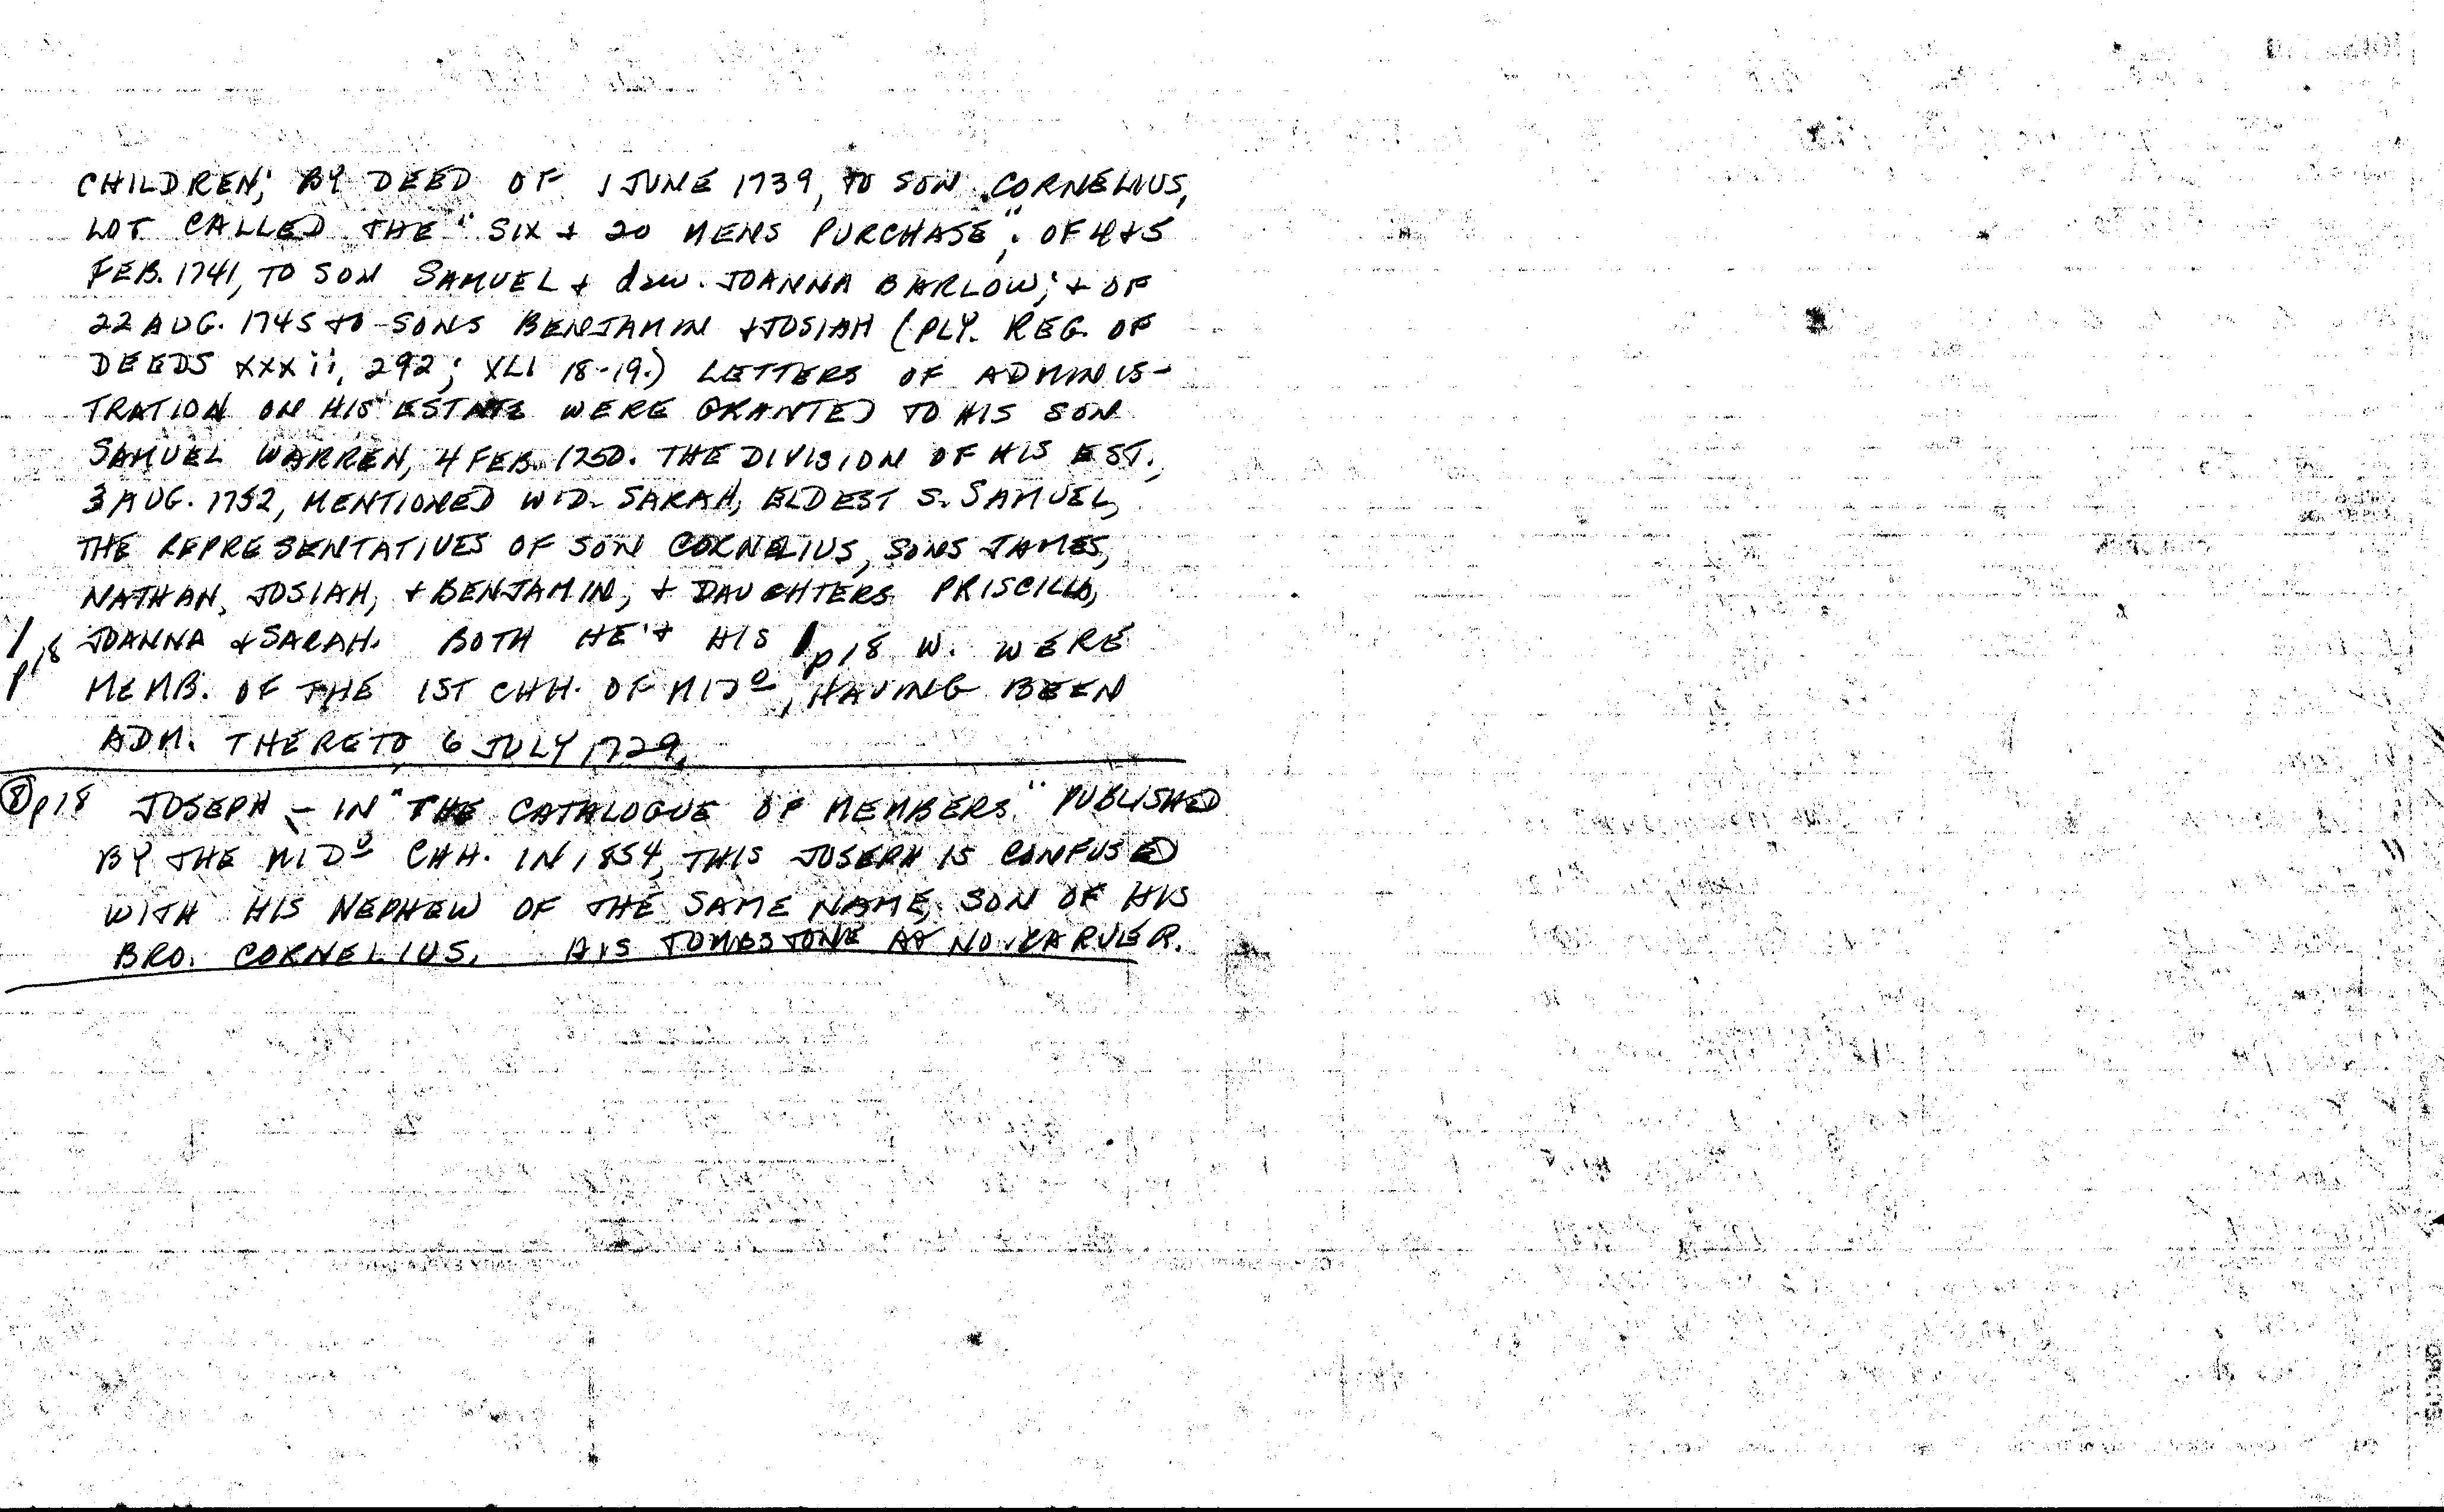 CHILDREN; BY DEED OF 1 JUNE 1739, TO SON CORNELIUS,
LOT CALLED THE "SIX + 20 MENS PURCHASE"; OF 4+5
FEB. 1741, TO SON SAMUEL + daw. JOANNA BARLOW; + OF
22 AUG. 1745 to SONS BENJAMIN + JOSIAH (PLY. REG. OF
DEEDS xxxii, 292; XLI 18-19.) LETTERS OF ADMINIS-
TRATION ON HIS ESTATE WERE GRANTED TO HIS SON
SAMUEL WARREN, 4 FEB. 1750. THE DIVISION OF HIS EST.,
3 AUG. 1752, MENTIONED WID. SARAH, ELDEST S. SAMUEL,
THE REPRESENTATIVES OF SON CORNELIUS, SONS JAMES,
NATHAN, JOSIAH, + BENJAMIN, + DAUGHTERS PRISCILLA,
/p18 JOANNA + SARAH. BOTH HE + HIS /p18 W. WERE
MEMB. OF THE 1ST CHH. OF MIDº, HAVING BEEN
ADM. THERETO, 6 JULY 1729.
⑧p18 JOSEPH - IN "THE CATALOGUE OF MEMBERS" PUBLISHED
BY THE MIDº CHH. IN 1854, THIS JOSEPH IS CONFUSED
WITH HIS NEPHEW OF THE SAME NAME, SON OF HIS
BRO. CORNELIUS. HIS TOMBSTONE AT NO. CARVER.